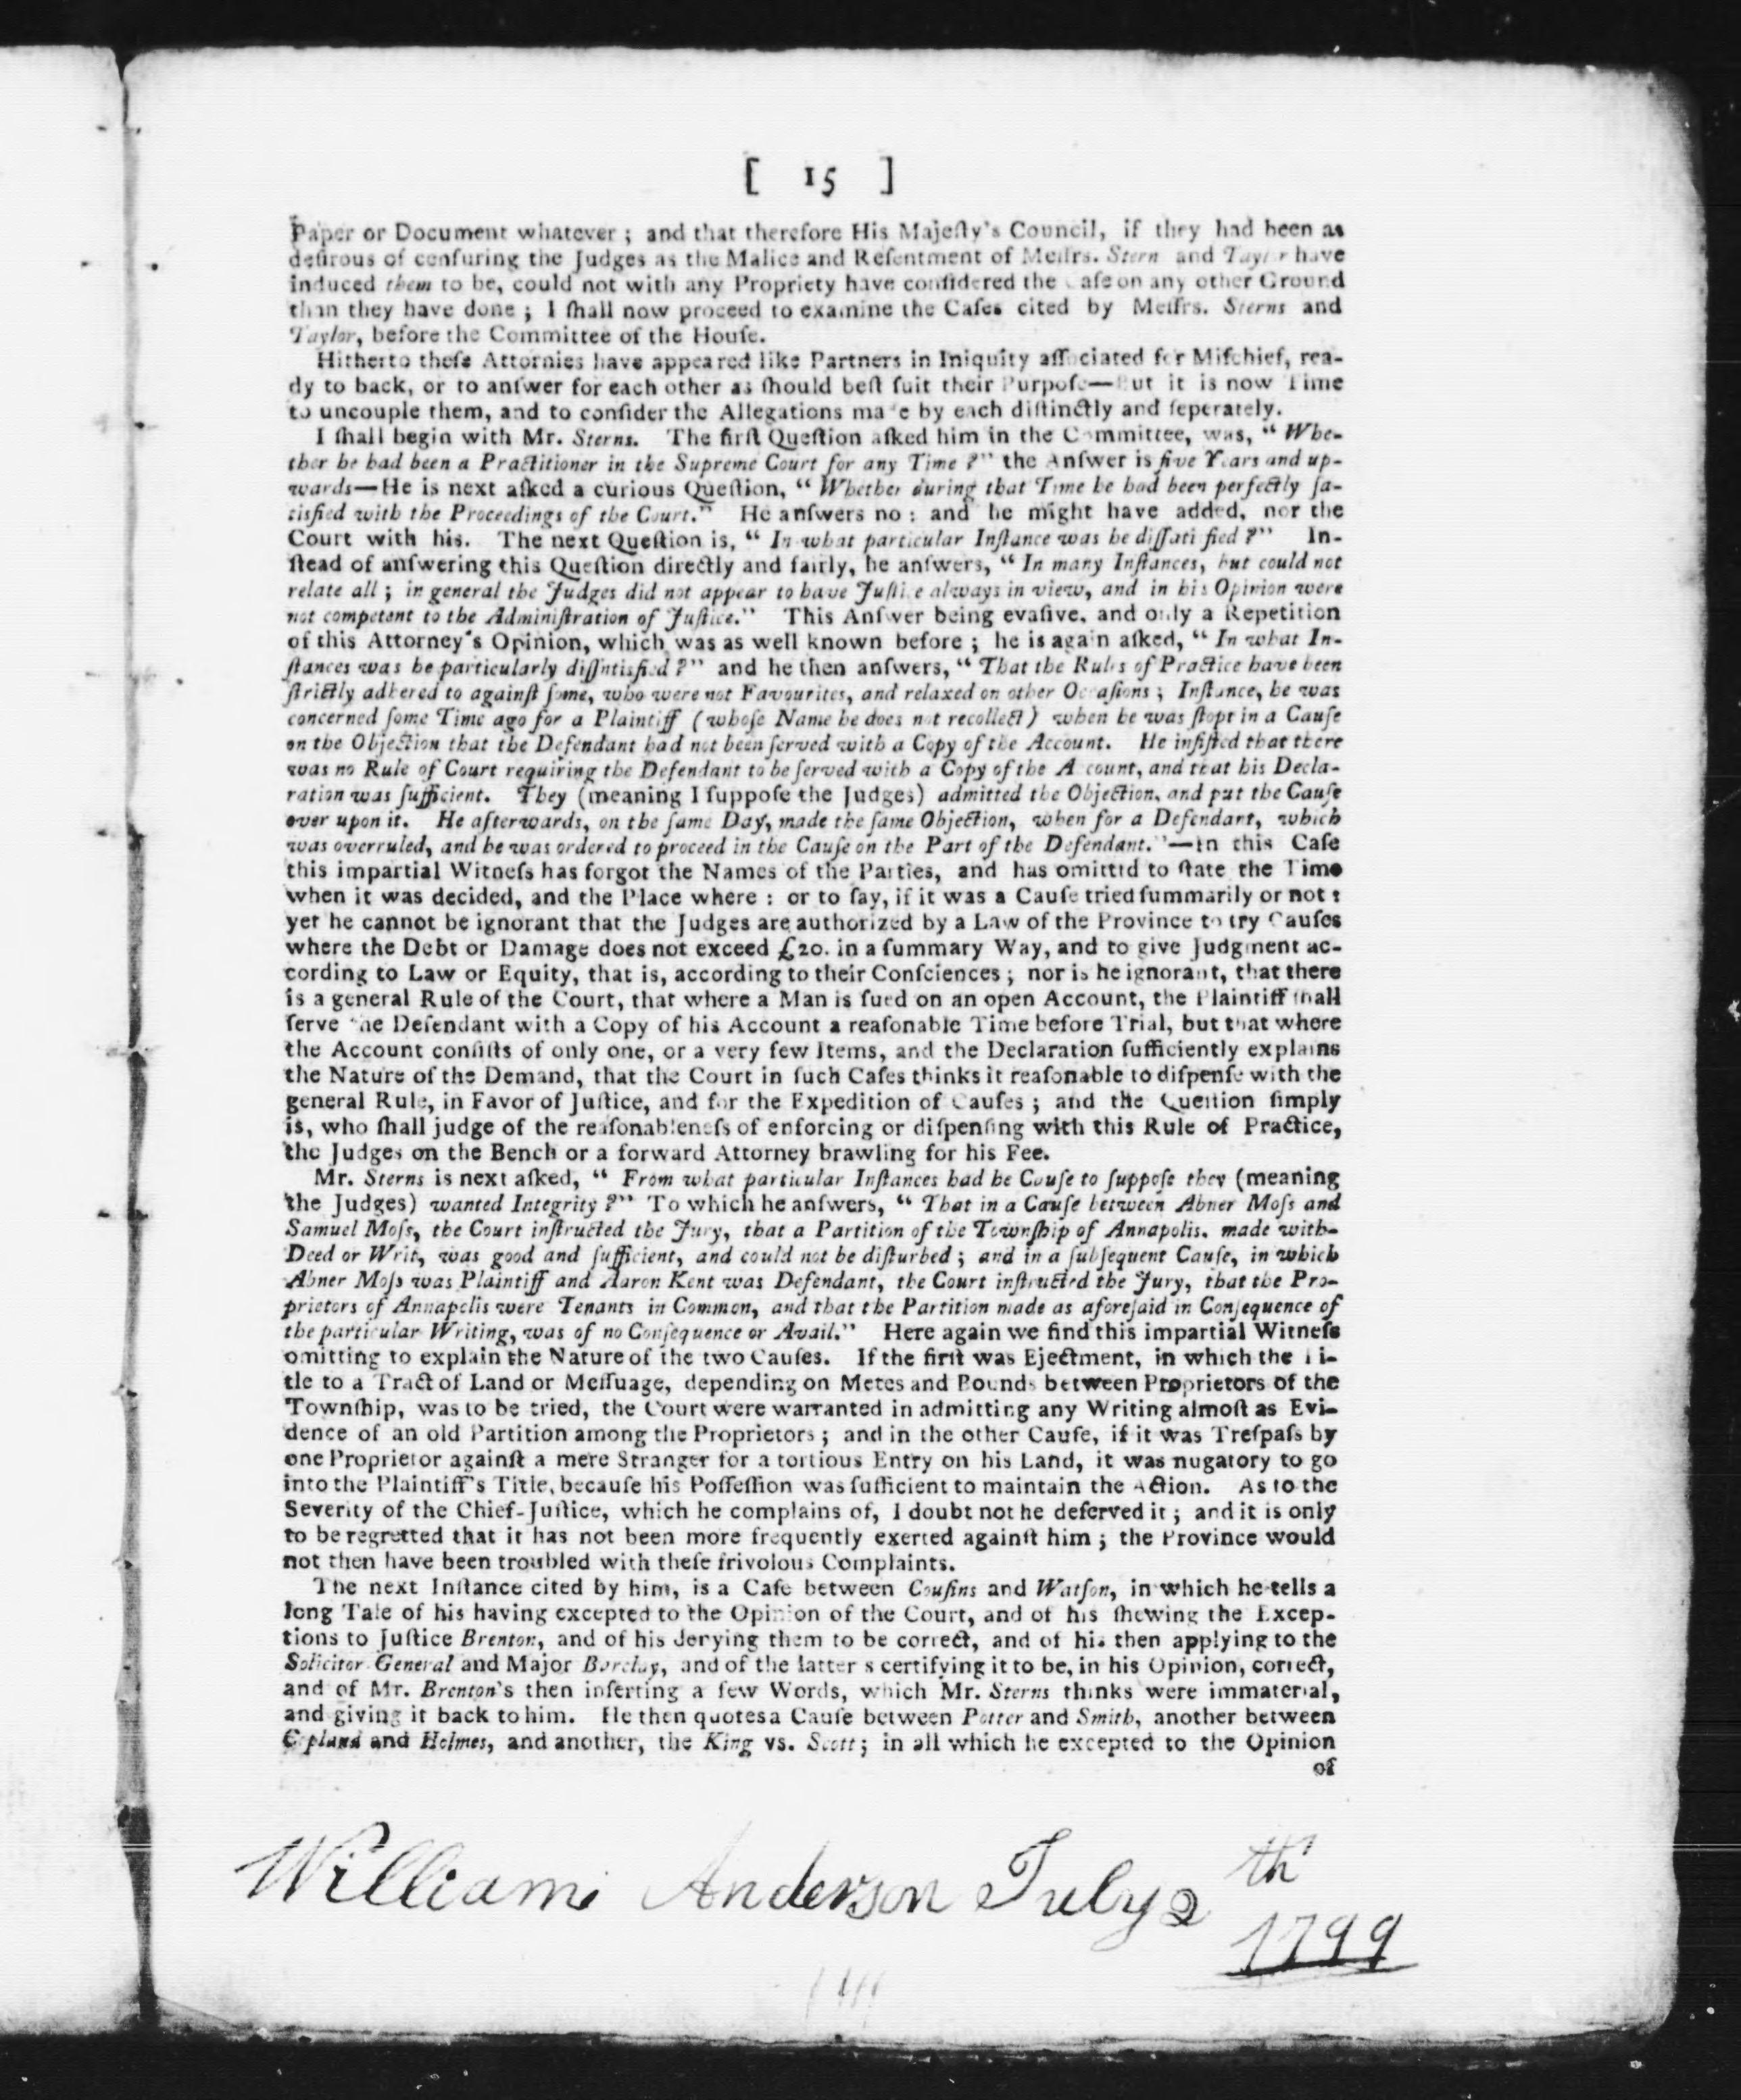 [ 15 ]
Paper or Document whatever ; and that therefore His Majeſty's Council, if they had been as
deſirous of cenſuring the Judges as the Malice and Reſentment of Meſſrs. Stern and Taylor have
induced them to be, could not with any Propriety have conſidered the Caſe on any other Ground
than they have done ; I ſhall now proceed to examine the Caſes cited by Meſſrs. Sterns and
Taylor, before the Committee of the Houſe.
Hitherto theſe Attornies have appeared like Partners in Iniquity aſſociated for Miſchief, rea-
dy to back, or to anſwer for each other as ſhould beſt ſuit their Purpoſe—But it is now Time
to uncouple them, and to conſider the Allegations made by each diſtinctly and ſeperately.
I ſhall begin with Mr. Sterns. The firſt Queſtion aſked him in the Committee, was, “ Whe-
ther he had been a Practitioner in the Supreme Court for any Time ?” the Anſwer is five Years and up-
wards—He is next aſked a curious Queſtion, “ Whether during that Time he had been perfectly ſa-
tisfied with the Proceedings of the Court.” He anſwers no : and he might have added, nor the
Court with his. The next Queſtion is, “ In what particular Inſtance was he diſſatisfied ?” In-
ſtead of anſwering this Queſtion directly and fairly, he anſwers, “ In many Inſtances, but could not
relate all ; in general the Judges did not appear to have Juſtice always in view, and in his Opinion were
not competent to the Adminiſtration of Juſtice.” This Anſwer being evaſive, and only a Repetition
of this Attorney's Opinion, which was as well known before ; he is again aſked, “ In what In-
ſtances was he particularly diſſatisfied ?” and he then anſwers, “ That the Rules of Practice have been
ſtrictly adhered to againſt ſome, who were not Favourites, and relaxed on other Occaſions ; Inſtance, he was
concerned ſome Time ago for a Plaintiff (whoſe Name he does not recollect) when he was ſtopt in a Cauſe
on the Objection that the Defendant had not been ſerved with a Copy of the Account. He inſiſted that there
was no Rule of Court requiring the Defendant to be ſerved with a Copy of the Account, and that his Decla-
ration was ſufficient. They (meaning I ſuppoſe the Judges) admitted the Objection, and put the Cauſe
over upon it. He afterwards, on the ſame Day, made the ſame Objection, when for a Defendant, which
was overruled, and he was ordered to proceed in the Cauſe on the Part of the Defendant.”—In this Caſe
this impartial Witneſs has forgot the Names of the Parties, and has omittd to ſtate the Time
when it was decided, and the Place where : or to ſay, if it was a Cauſe tried ſummarily or not :
yet he cannot be ignorant that the Judges are authorized by a Law of the Province to try Cauſes
where the Debt or Damage does not exceed £20. in a ſummary Way, and to give Judgment ac-
cording to Law or Equity, that is, according to their Conſciences ; nor is he ignorant, that there
is a general Rule of the Court, that where a Man is ſued on an open Account, the Plaintiff ſhall
ſerve the Defendant with a Copy of his Account a reaſonable Time before Trial, but that where
the Account conſiſts of only one, or a very few Items, and the Declaration ſufficiently explains
the Nature of the Demand, that the Court in ſuch Caſes thinks it reaſonable to diſpenſe with the
general Rule, in Favor of Juſtice, and for the Expedition of Cauſes ; and the Queſtion ſimply
is, who ſhall judge of the reaſonableneſs of enforcing or diſpenſing with this Rule of Practice,
the Judges on the Bench or a forward Attorney brawling for his Fee.
Mr. Sterns is next aſked, “ From what particular Inſtances had he Cauſe to ſuppoſe they (meaning
the Judges) wanted Integrity ?” To which he anſwers, “ That in a Cauſe between Abner Moſs and
Samuel Moſs, the Court inſtructed the Jury, that a Partition of the Townſhip of Annapolis. made with-
Deed or Writ, was good and ſufficient, and could not be diſturbed ; and in a ſubſequent Cauſe, in which
Abner Moſs was Plaintiff and Aaron Kent was Defendant, the Court inſtructed the Jury, that the Pro-
prietors of Annapolis were Tenants in Common, and that the Partition made as aforeſaid in Conſequence of
the particular Writing, was of no Conſequence or Avail.” Here again we find this impartial Witneſs
omitting to explain the Nature of the two Cauſes. If the firſt was Ejectment, in which the Ti-
tle to a Tract of Land or Meſſuage, depending on Metes and Bounds between Proprietors of the
Townſhip, was to be tried, the Court were warranted in admitting any Writing almoſt as Evi-
dence of an old Partition among the Proprietors ; and in the other Cauſe, if it was Treſpaſs by
one Proprietor againſt a mere Stranger for a tortious Entry on his Land, it was nugatory to go
into the Plaintiff's Title, becauſe his Poſſeſſion was ſufficient to maintain the Action. As to the
Severity of the Chief-Juſtice, which he complains of, I doubt not he deſerved it ; and it is only
to be regretted that it has not been more frequently exerted againſt him ; the Province would
not then have been troubled with theſe frivolous Complaints.
The next Inſtance cited by him, is a Caſe between Couſins and Watſon, in which he tells a
long Tale of his having excepted to the Opinion of the Court, and of his ſhewing the Excep-
tions to Juſtice Brenton, and of his denying them to be correct, and of his then applying to the
Solicitor General and Major Barclay, and of the latter s certifying it to be, in his Opinion, correct,
and of Mr. Brenton's then inſerting a few Words, which Mr. Sterns thinks were immaterial,
and giving it back to him. He then quotes a Cauſe between Potter and Smith, another between
Copland and Holmes, and another, the King vs. Scott ; in all which he excepted to the Opinion
of
William Anderson July 2th
1799